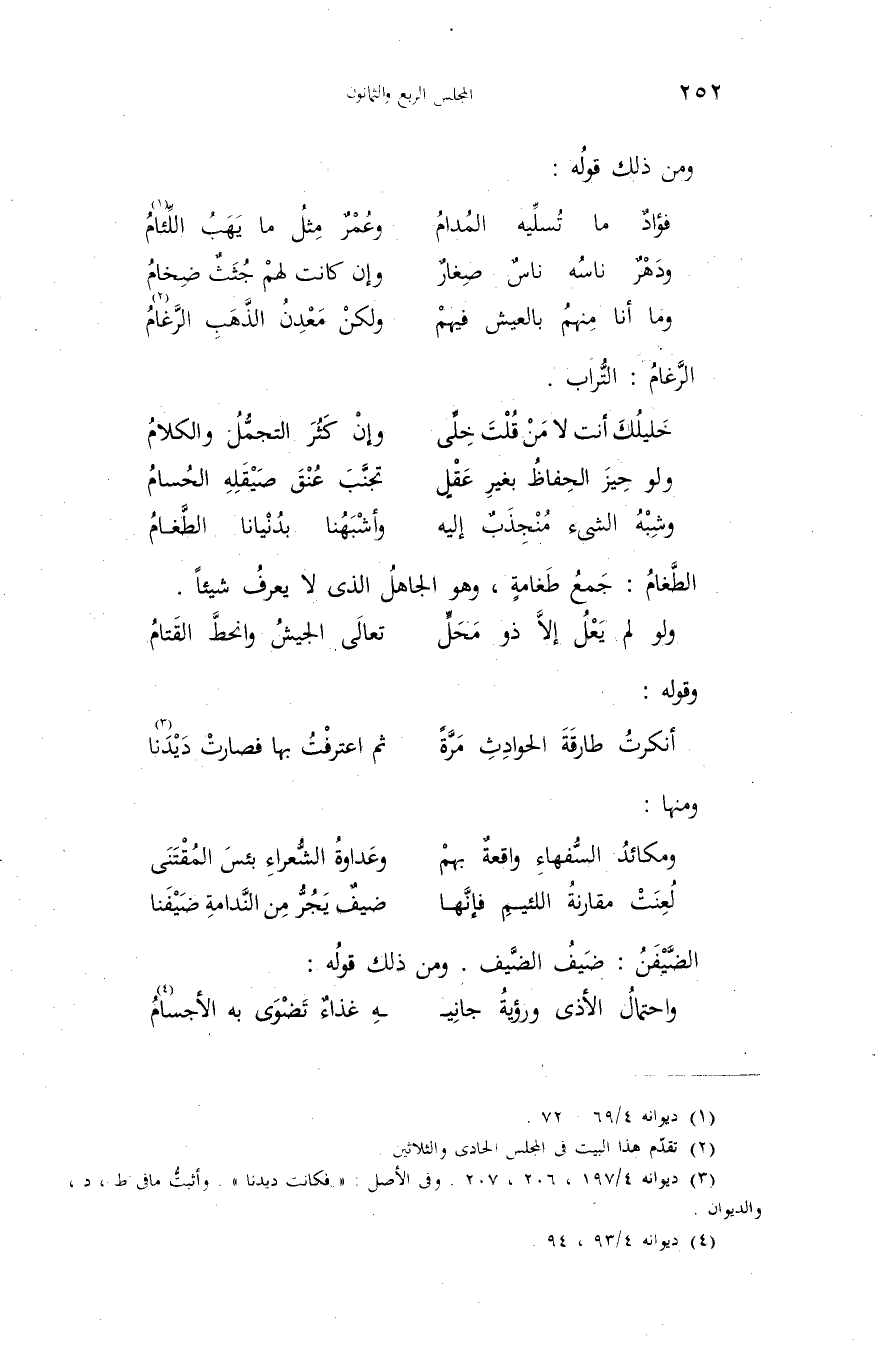 ٢٥٢ المجلس الربع والثمانون
ومن ذلك قولُه :
فؤادٌ ما تُسلِّيه المُدامُ وعُمْرٌ مِثلُ ما يَهَبُ اللِّئامُ (١)
ودَهْرٌ ناسُه ناسٌ صغارٌ وإن كانت لهمْ جُثَثٌ ضِخامُ
وما أنا مِنهمُ بالعيش فيهمْ ولكنْ مَعْدِنُ الذَّهَبِ الرَّغامُ (٢)
الرَّغامُ : التُّراب .
خَليلُكَ أنت لا مَنْ قُلْتَ خِلِّى وإنْ كَثُرَ التجمُّلُ والكلامُ
ولو حِيزَ الحِفاظُ بغيرِ عَقْلٍ تجنَّبَ عُنْقَ صَيْقَلِهِ الحُسامُ
وشِبْهُ الشىء مُنْجذَبٌ إليه وأشْبَهُنا بدُنْيانا الطَّغامُ
الطَّغامُ : جَمعُ طَغامةٍ ، وهو الجاهلُ الذى لا يعرفُ شيئاً .
ولو لم يَعْلُ إلاَّ ذو مَحَلٍّ تعالَى الجيشُ وانحطَّ القَتامُ
وقوله :
أنكرتُ طارقَةَ الحوادِثِ مَرَّةً ثم اعترفْتُ بها فصارتْ دَيْدَنا (٣)
ومنها :
ومكائدُ السُّفهاءِ واقعةٌ بهمْ وعَداوةُ الشُّعراءِ بئسَ المُقْتَنَى
لُعِنَتْ مقارنةُ اللئيـمِ فإنَّهـا ضيفٌ يَجُرُّ مِن النَّدامةِ ضَيْفَنا
الضَّيْفَنُ : ضَيفُ الضَّيف . ومن ذلك قولُه :
واحتمالُ الأذى ورؤيةُ جانِيـ ـهِ غذاءٌ تَضْوَى به الأجسامُ (٤)
(١) ديوانه ٦٩/٤ - ٧٢ .
(٢) تقدّم هذا البيت فى المجلس الحادى والثلاثين .
(٣) ديوانه ١٩٧/٤ ، ٢٠٦ ، ٢٠٧ . وفى الأصل : « فكانت ديدنا » . وأثبتُّ مافى ط ، د ،
والديوان .
(٤) ديوانه ٩٣/٤ ، ٩٤ .